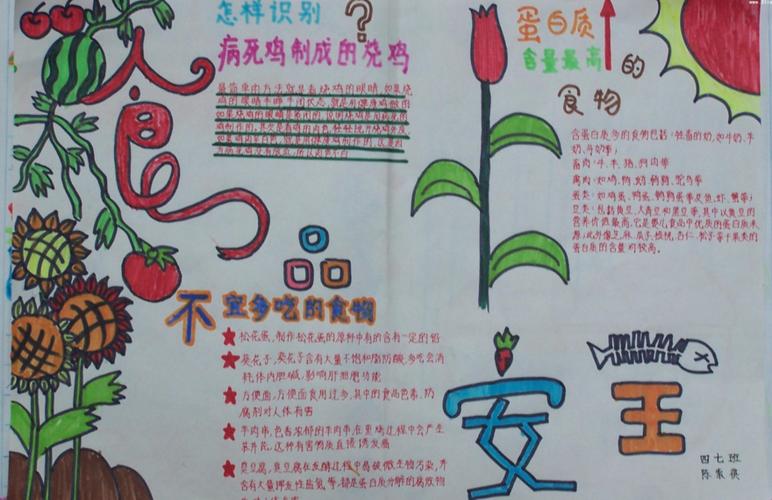 食
品
安
全
怎样识别?
病死鸡制成的烧鸡
最简单的方法就是看烧鸡的眼睛,如果烧
鸡的眼睛半睁半闭状态,就是用健康鸡做的
不宜多吃的食物
松花蛋,制作松花蛋的原料中有的含有一定的铅
葵花子,葵花子含有大量不饱和脂肪酸,多吃会消
耗体内胆碱,影响肝细胞功能
方便面,方便面食用过多,其中的食品色素,防
腐剂对人体有害
羊肉串,色香浓郁的羊肉串在熏鸡过程中会产生
臭豆腐,臭豆腐在发酵过程中易被微生物污染,并
含有大量挥发性盐氨,等,都是蛋白质分解的腐败物
蛋白质
含量最高的
食物
含蛋白质多的食物包括:牲畜的奶,如牛奶、羊
奶、马奶等;
畜肉:牛、羊、猪、狗肉等
禽肉:如鸡、鸭、鹅、鹌鹑、鸵鸟等
蛋类:如鸡蛋、鸭蛋、鹌鹑蛋等及鱼、虾、蟹等;
豆类:包括黄豆、大青豆和黑豆等,其中以黄豆的
营养价值最高,它是婴儿食品中优质的蛋白质来
源,此外像芝麻、瓜子、核桃、杏仁、松子等干果类的
蛋白质的含量均较高。
四七班